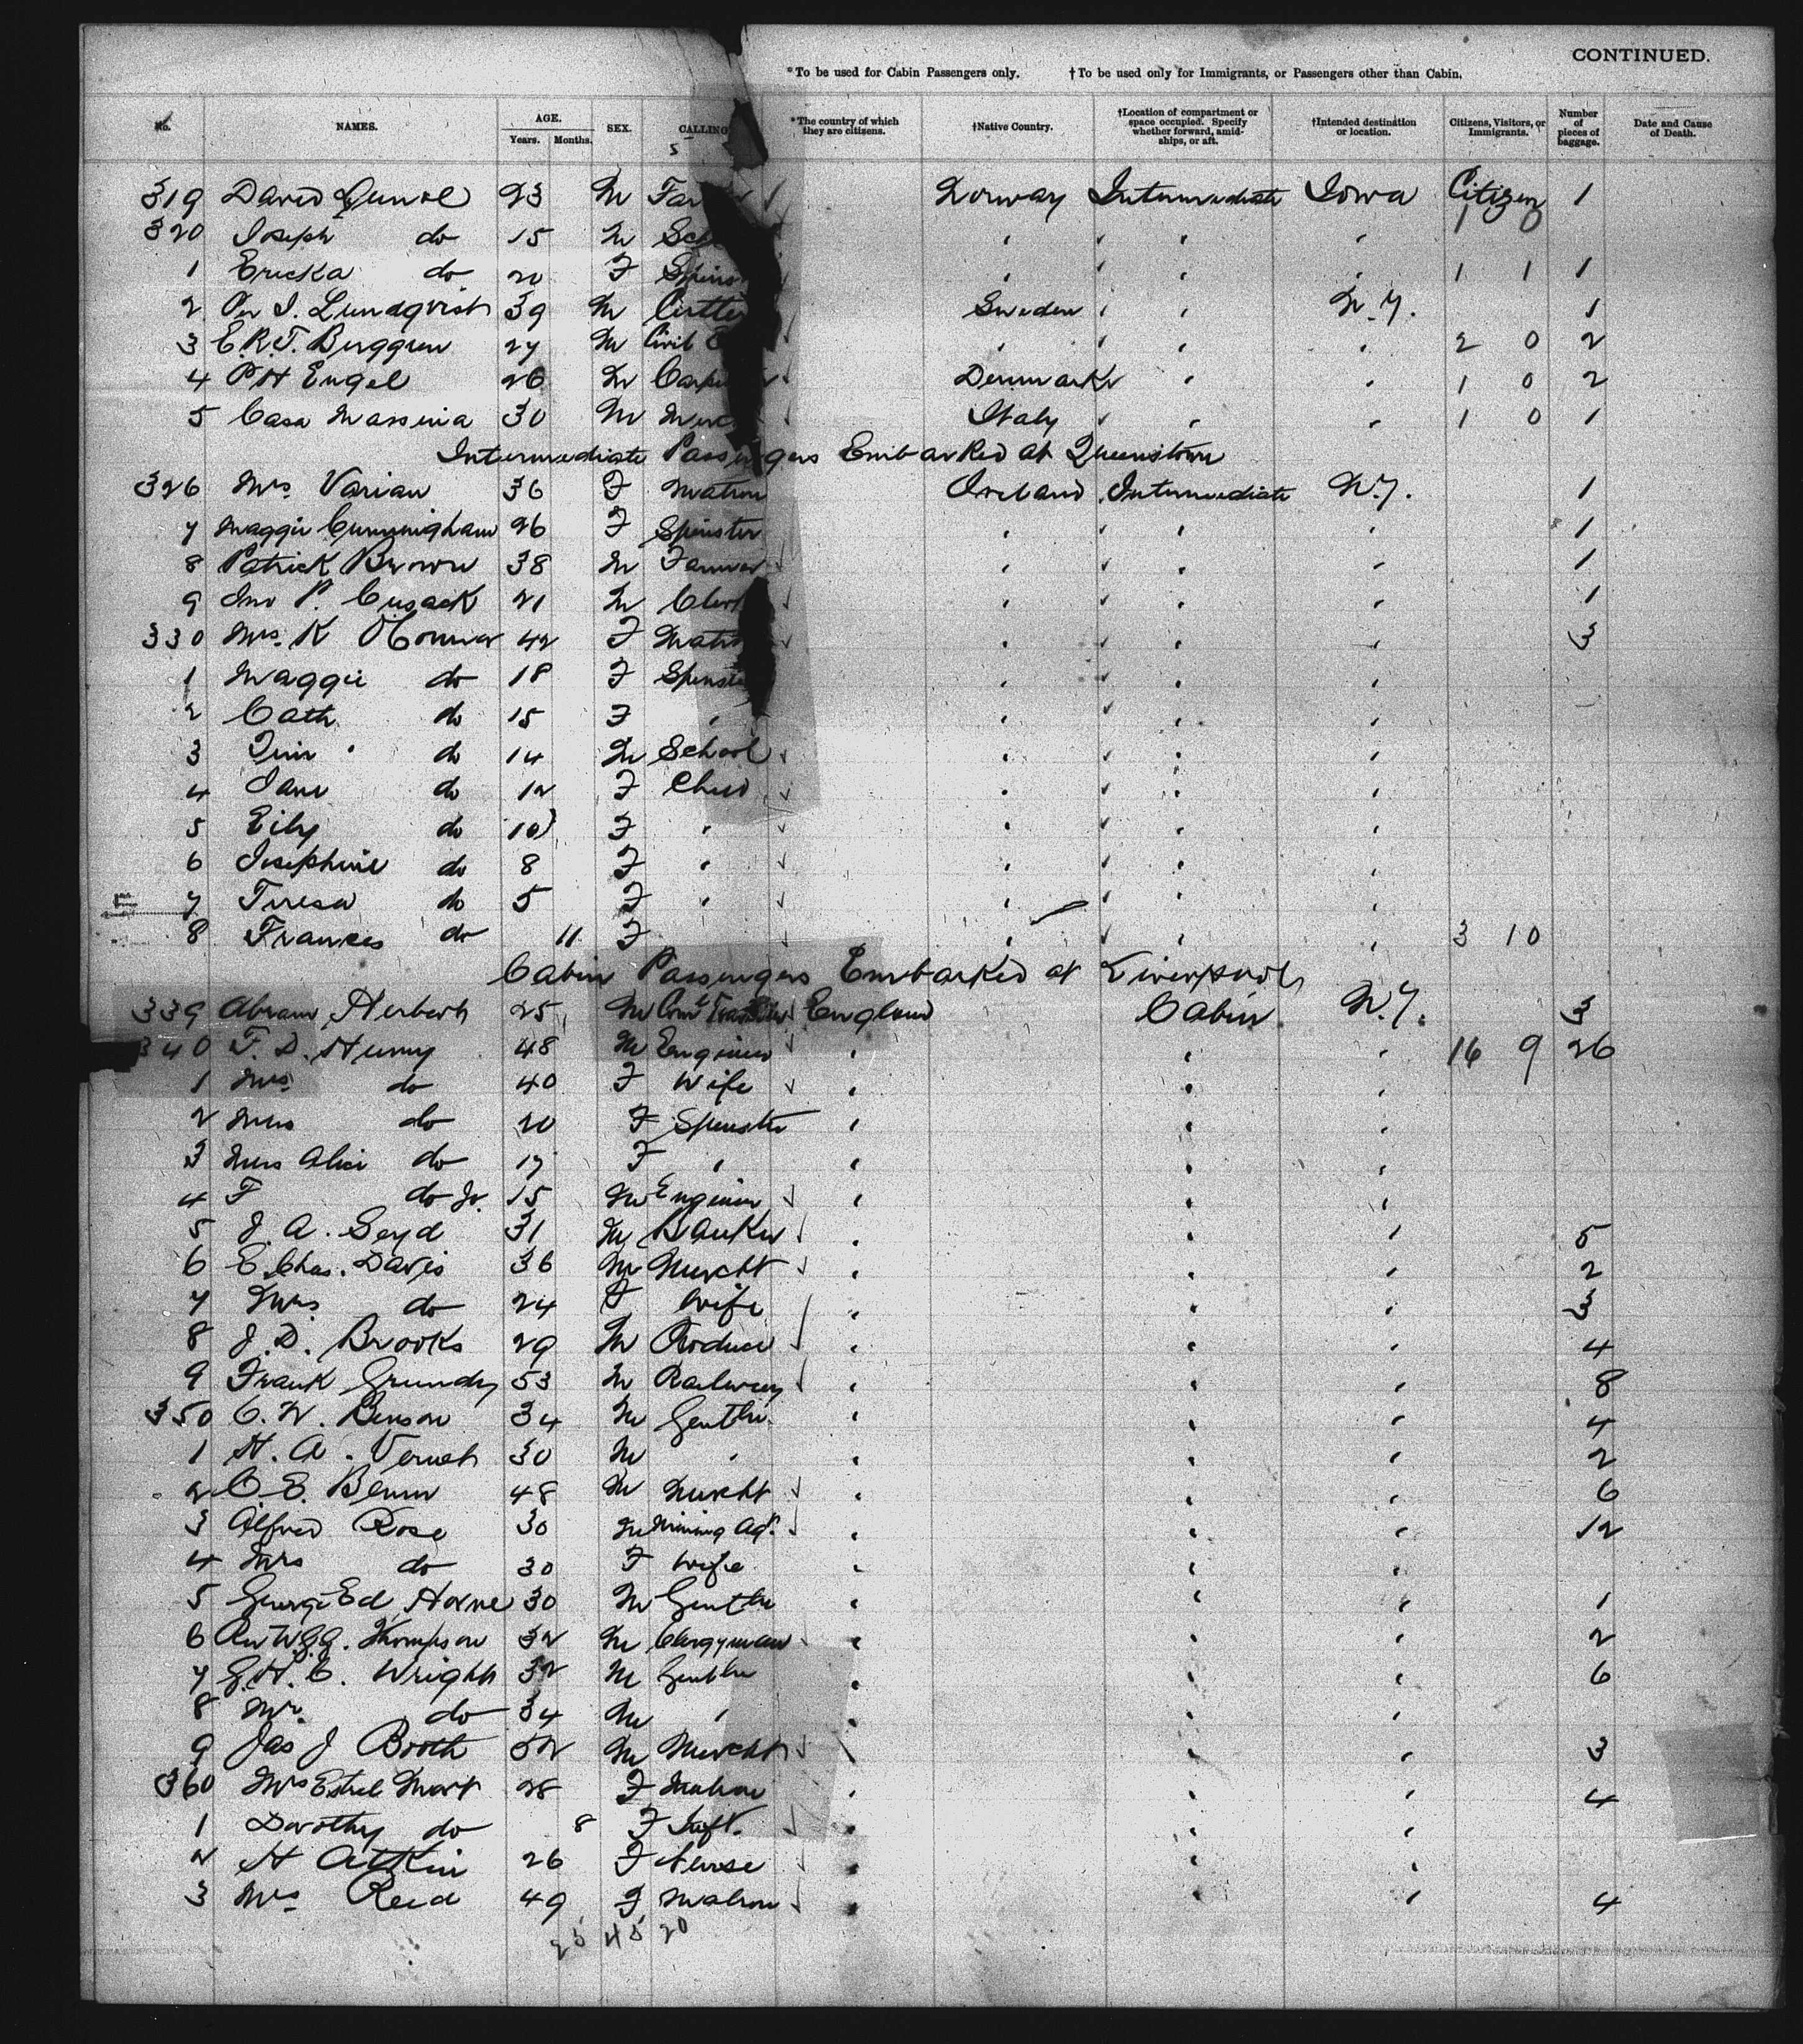 CONTINUED.
*To be used for Cabin Passengers only. †To be used only for Immigrants, or Passengers other than Cabin.
No. NAMES. AGE. Years. Months. SEX. CALLING *The country of which they are citizens. †Native Country. †Location of compartment or space occupied. Specify whether forward, amid-ships, or aft. †Intended destination or location. Citizens, Visitors, or Immigrants. Number of pieces of baggage. Date and Cause of Death.
319 David 23 M Far Norway Intermediate Iowa Citizen 1
320 Joseph do 15 M Sch 1 0
1 Ericka do 20 F Spins 1 1 1
2 Per J. Lundqvist 39 M Cutte Sweden N.Y. 1
3 E.R.T. Berggren 27 M Civil E 2 0 2
4 P H Engel 26 M Carpe Denmark 1 0 2
5 Casa Massinia 30 M Merc Italy 1 0 1
Intermediate Passengers Embarked at Queenstown
326 Mrs Varian 36 F Matron Ireland Intermediate N.Y. 1
7 Maggie Cunningham 26 F Spinster 1
8 Patrick Browne 38 M Farmer 1
9 Jno P. Cusack 21 M Clerk 1
330 Mrs. K O'Connor 42 F Matr 3
1 Maggie do 18 F Spinste
2 Cath do 15 F
3 Tim do 14 M School
4 Jane do 12 F Child
5 Eily do 10 F
6 Josephine do 8 F
7 Teresa do 5 F
8 Frances do 11 F 3 10
Cabin Passengers Embarked at Liverpool
339 Abram Herbert 25 M England Cabin N.Y. 3
340 F. D. Henry 48 M Engineer 16 9 26
1 Mrs do 40 F Wife
2 Miss do 20 F Spinster
3 Miss Alice do 17 F
4 F do Jr. 15 M Engineer
5 J. A. Seyd 31 M Banker 5
6 E. Chas. Davis 36 M Mercht 2
7 Mrs do 24 F Wife 3
8 J. D. Brooks 29 M Produce 4
9 Frank Grundy 53 M Railway 8
350 C. W. Benson 34 M Gentln. 4
1 H. A. Vernet 30 M 2
2 C. E. 48 M Mercht 6
3 Alfred Rose 30 M Mining Agt. 12
4 Mrs do 30 F Wife
5 George Ed. Horne 30 M Gentln 1
6 Rev W.G.G. Thompson 32 M Clergyman 2
7 G. H. C. Wright 32 M Gentln 6
8 Mr. do 34 M
9 Jas J Booth 52 M Mercht 3
360 Mrs 28 F Matron 4
1 Dorothy do 8 F Inft.
2 H Aitkin 26 F Nurse
3 Mrs Reid 49 F Matron 4
25 45 20